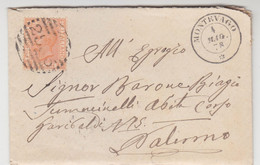 MONTEVAGO
1
MAG
78
All' Egregio
Signor Barone Biagio
Corso
Garibaldi N. 15
Palermo